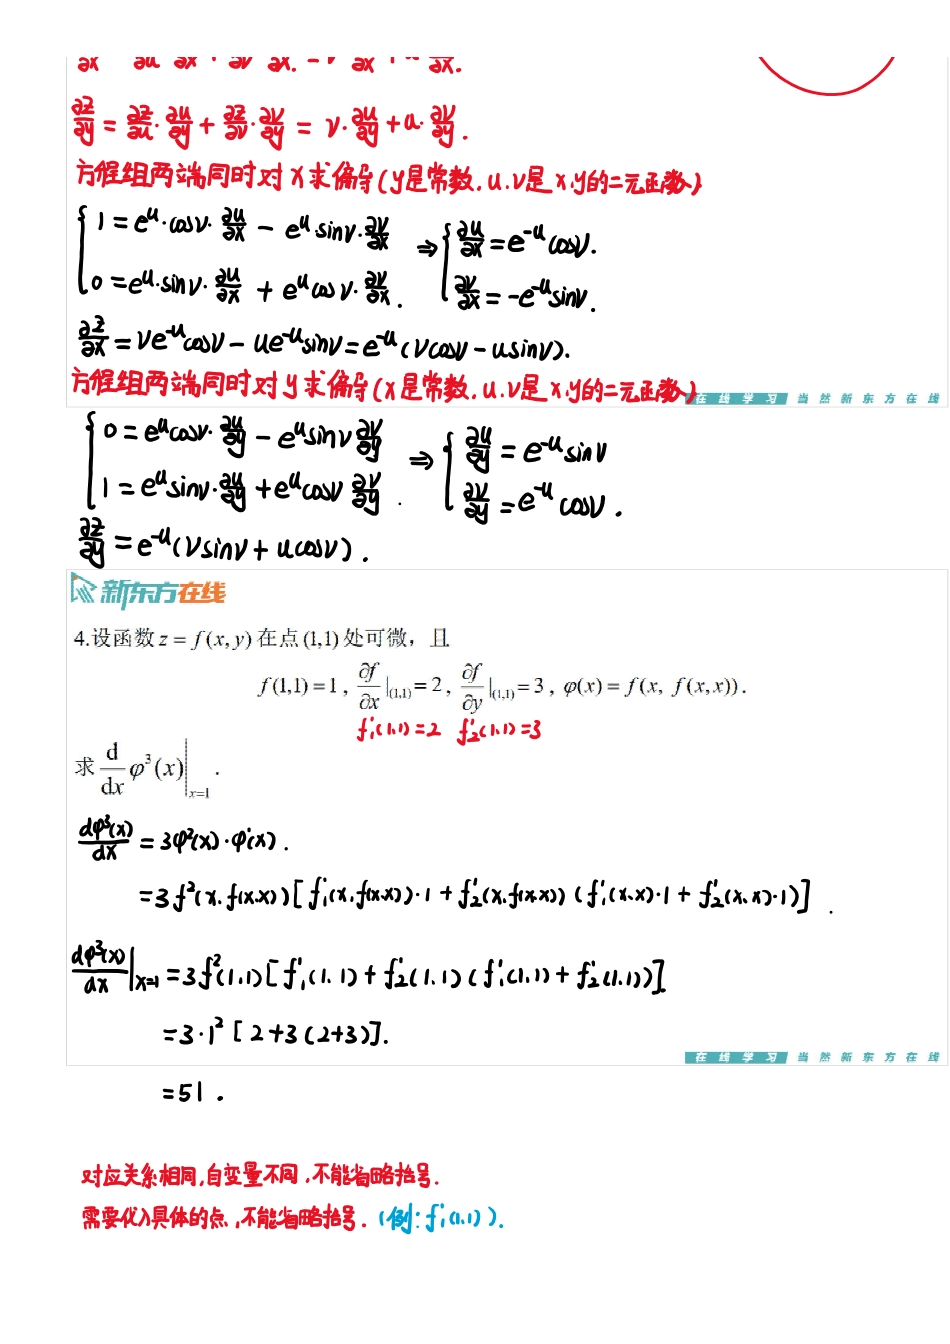 ∂z/∂y = ∂z/∂u·∂u/∂y + ∂z/∂v·∂v/∂y = v·∂u/∂y + u·∂v/∂y.
方程组两端同时对x求偏导(y是常数.u.v是x.y的二元函数)
{1 = e^u·cosv·∂u/∂x − e^u sinv·∂v/∂x ⇒ {∂u/∂x = e^-u cosv.
0 = e^u·sinv·∂u/∂x + e^u cosv·∂v/∂x. ∂v/∂x = -e^-u sinv.
∂z/∂x = ve^-u cosv − ue^-u sinv = e^-u(vcosv − usinv).
方程组两端同时对y求偏导(x是常数.u.v是x.y的二元函数)
在线学习 当然新东方在线
{0 = e^u cosv·∂u/∂y − e^u sinv ∂v/∂y ⇒ {∂u/∂y = e^-u sinv
1 = e^u sinv·∂u/∂y + e^u cosv ∂v/∂y. ∂v/∂y = e^-u cosv.
∂z/∂y = e^-u(vsinv + ucosv).
新东方在线
4.设函数 z = f(x, y) 在点 (1,1) 处可微，且
f(1,1) = 1 , ∂f/∂x|(1,1) = 2 , ∂f/∂y|(1,1) = 3 , φ(x) = f(x, f(x,x)) .
f'₁(1.1)=2 f'₂(1.1)=3
求 d/dx φ³(x)|x=1 .
dφ³(x)/dx = 3φ²(x)·φ'(x).
=3f²(x.f(x.x))[f'₁(x.f(x.x))·1 + f'₂(x.f(x.x))(f'₁(x.x)·1 + f'₂(x.x)·1)].
dφ³(x)/dx|x=1 = 3f²(1.1)[f'₁(1.1) + f'₂(1.1)(f'₁(1.1) + f'₂(1.1))].
=3·1²[2+3(2+3)].
在线学习 当然新东方在线
=51.
对应关系相同,自变量不同.不能省略括号.
需要代入具体的点,不能省略括号.(例:f'₁(1.1)).